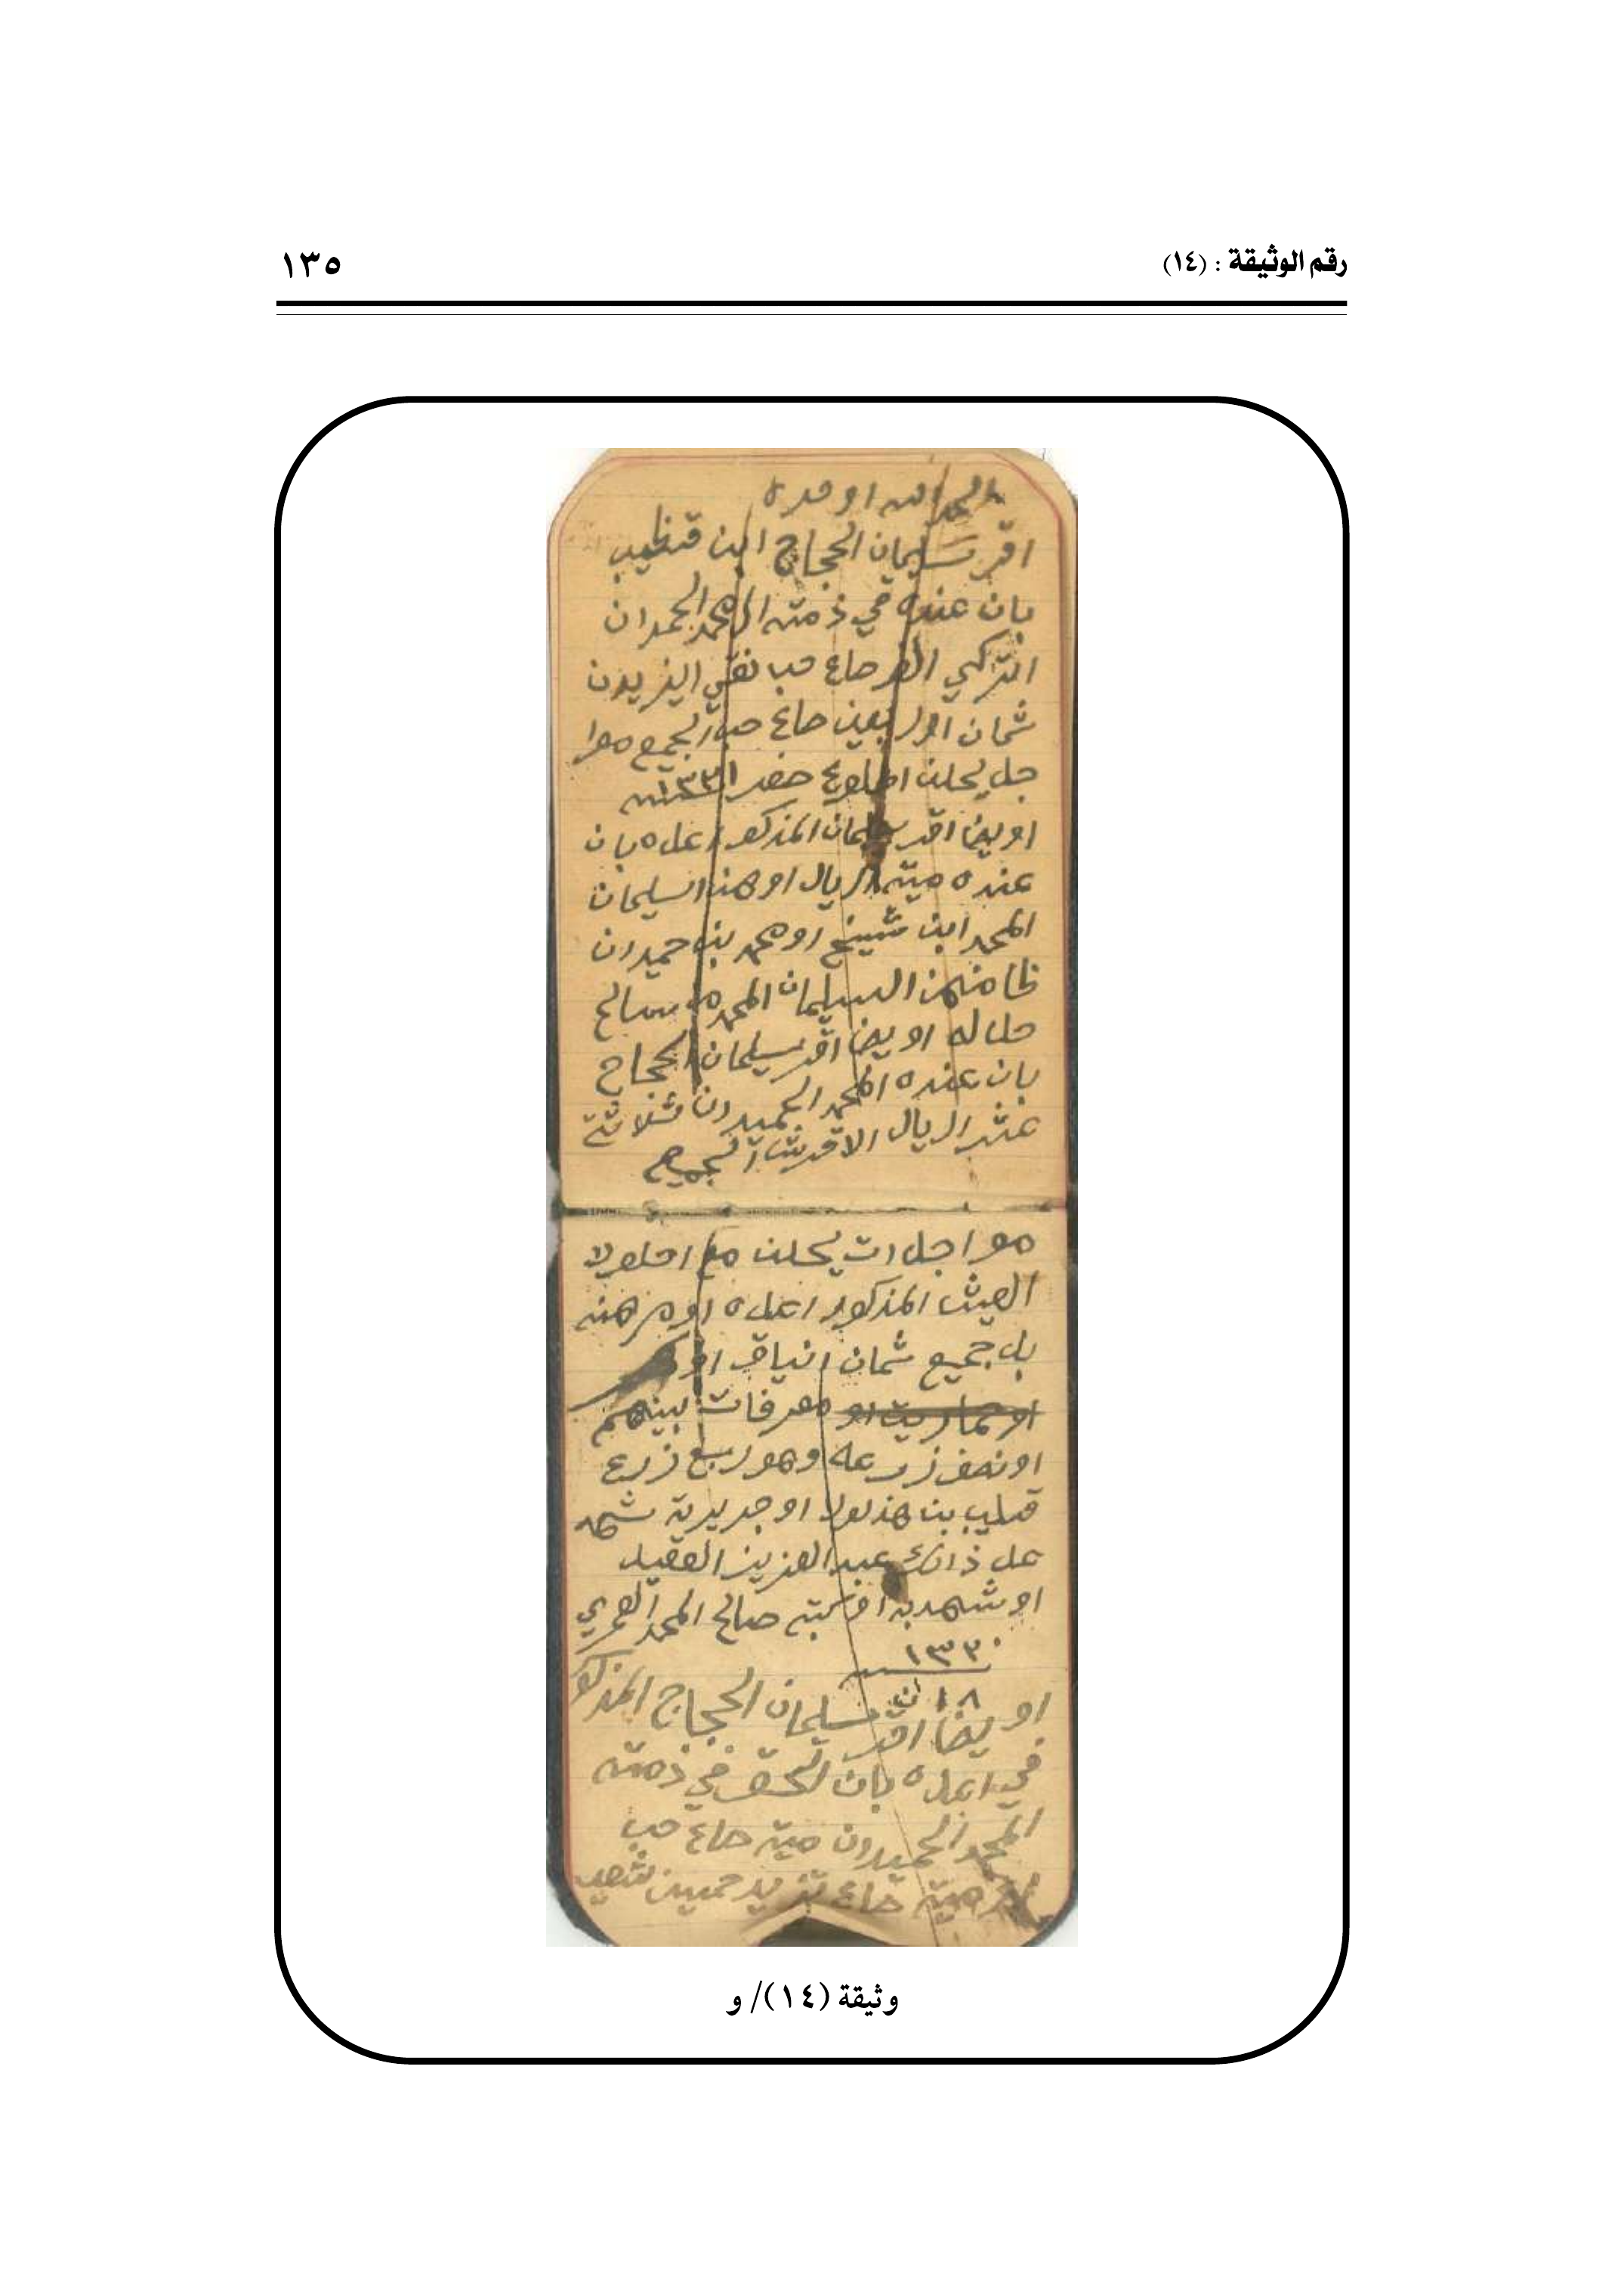 رقم الوثيقة : (١٤)
١٣٥
الحمد لله او حده
اقر سليمان الحجاج ابن قنطيب
بان عنده في ذمته المحمد الحميدان
التركي الف صاع حب نقي اليزيدون
ثمان اور بعين صاع حب الجميع موا
جل يحلن اطلوع صفر ١٣٣١
او يضا اقر سليمان المذكور اعلاه بان
عنده ميته اريال او هن السليمان
المحمد ابن شيبخ او محمد بن حميدان
ظامنهن السليمان المحمد من سالح
حلاله او يضا اقر سليمان الحجاج
بان عنده المحمد الحميدان ثلاثة
عشر اريال الاقرش الجميع
مواجلات يحلن مع احلول
العيش المذكور اعلاه او مرهنه
بل جميع ثمان انياق او
او حماريت او معرفات بينهم
او نصف زرعه وهو ربع زرع
قليب بن هذلول او جريرية شهد
عل ذالك عبد العزيز العقيل
او شهد به او كتبه صالح المحمد العمري
١٣٣٠
١٨ ن
او يضا اقر سليمان الحجاج المذكو
في اعلاه بان لحق في ذمته
المحمد الحميدان ميته صاع حب
ميته صاع تزيد خمسين شعيب
وثيقة (١٤)/ و